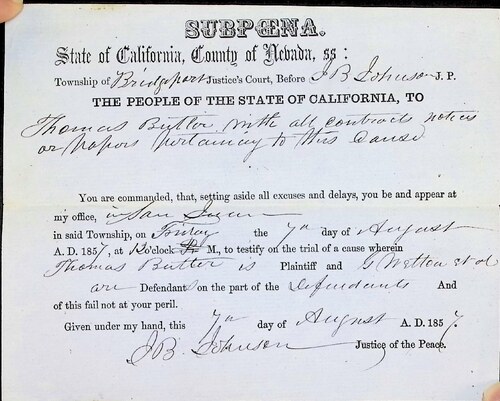 SUBPŒNA.
State of California, County of Nevada, ss:
Township of Bridgeport Justice's Court, Before J B Johnson J. P.
THE PEOPLE OF THE STATE OF CALIFORNIA, TO
Thomas Butler with all contracts notices
or papers pertaining to this Cause
You are commanded, that, setting aside all excuses and delays, you be and appear at
my office, in San Juan
in said Township, on Friday the 7th day of August
A. D. 1857, at o'clock M., to testify on the trial of a cause wherein
Thomas Butler is Plaintiff and et al
are Defendants on the part of the Defendants And
of this fail not at your peril.
Given under my hand, this 7th day of August A. D. 1857.
J B Johnson Justice of the Peace.